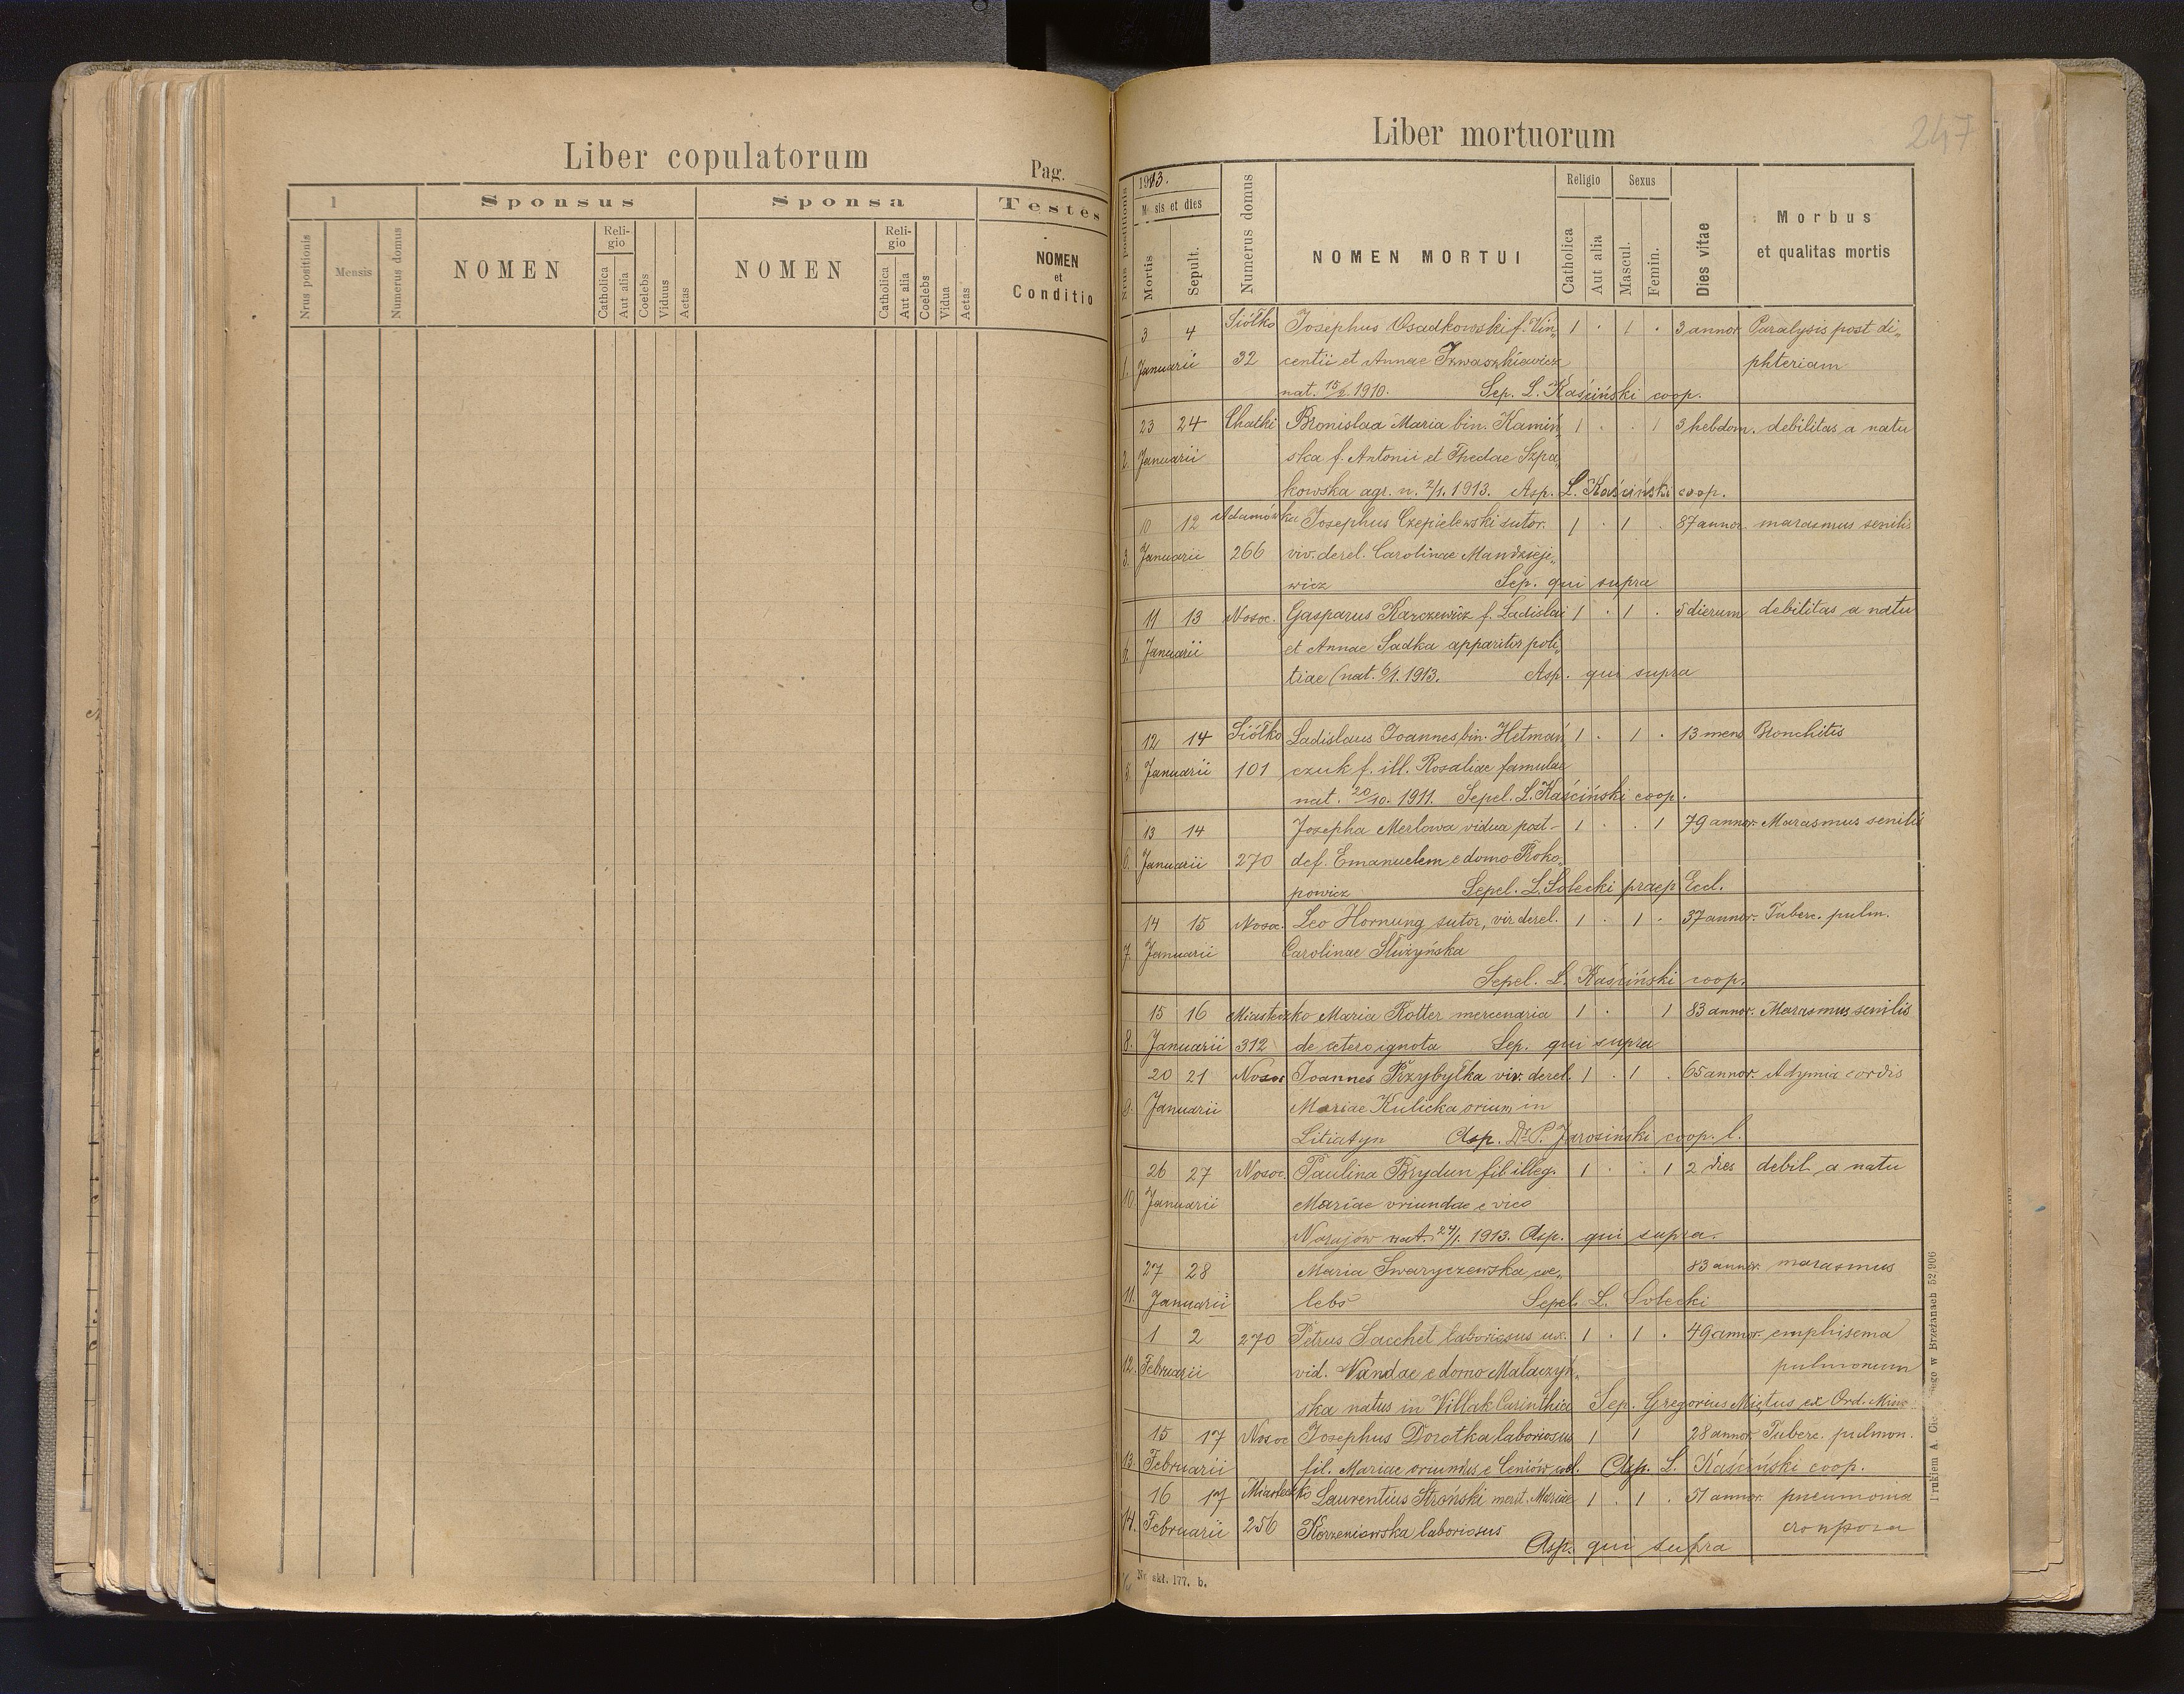 Liber copulatorum
Pag.
1
Sponsus
Sponsa
Testes
Nrus positionis
Mensis
Numerus domus
NOMEN
Reli-
gio
Catholica
Aut alia
Coelebs
Viduus
Aetas
NOMEN
Reli-
gio
Catholica
Aut alia
Coelebs
Vidua
Aetas
NOMEN
et
Conditio
247
Liber mortuorum
Nrus positionis
1913.
M sis et dies
Mortis
Sepult.
Numerus domus
NOMEN MORTUI
Religio
Catholica
Aut alia
Sexus
Mascul.
Femin.
Dies vitae
Morbus
et qualitas mortis
3 4 Siółko Josephus Osadkowski f. Vin„ 1 . 1 . 3 annor. Paralysis post di„
1. Januarii 32 centii et Annae Iwaszkiewicz phteriam
nat. 15/2. 1910. Sep. L. Kaściński coop.
23 24 Chatki Bronislaa Maria bin. Kamiń„ 1 . . 1 3 hebdom. debilitas a natu
2. Januarii ska f. Antonii et Theclae Szpa„
kowska agr. n. 2/1. 1913. Asp. L. Kaściński coop.
10 12 Adamówka Josephus Czepielewski sutor. 1 . 1 . 87 annor. marasmus senilis
3. Januarii 266 vir. derel. Carolinae Mandzieje„
wicz Sep. qui supra
11 13 Nosoc. Gasparus Karczewicz f. Ladislai 1 . 1 . 5 dierum debilitas a natu
4. Januarii et Annae Sadka apparitor poli„
tiae (nat. 6/1. 1913. Asp. qui supra
12 14 Siółko Ladislaus Joannes bin. Hetmań„ 1 . 1 . 13 mens Bronchitis
5. Januarii 101 czuk f. ill. Rosaliae famulae
nat. 20/10. 1911. Sepel. L. Kaściński coop.
13 14 Josepha Merlowa vidua post- 1 . . 1 79 annor. Marasmus senilis
6. Januarii 270 def. Emanuelem e domo Proko„
powicz Sepel. L. Solecki praep. Eccl.
14 15 Nosoc. Leo Hornung sutor, vir derel. 1 . 1 . 37 annor. Tuberc. pulm.
7. Januarii Carolinae Służyńska
Sepel. L. Kaściński coop.
15 16 Miasteczko Maria Rotter mercenaria 1 . 1 83 annor. Marasmus senilis
8. Januarii 312 de cetero ignota Sep. qui supra
20 21 Nosoc Joannes Przybyłka vir. derel. 1 . 1 . 65 annor. Adymia cordis
9. Januarii Mariae Kulicka orium in
Litiatyn Asp. Dr. P. Jarosiński coop. l.
26 27 Nosoc. Paulina Brydun fil. illeg. 1 . . 1 2 dies debil. a natu
10. Januarii Mariae oriundae e vico
Narajów nat. 24/1. 1913. Asp. qui supra.
27 28 Maria Swaryczewska coe„ 83 annor. marasmus
11. Januarii lebs Sepel. L. Solecki
1 2 270 Petrus Sacchet laboriosus ux. 1 . 1 . 49 annor. emphisema
12. Februarii vid. Vandae e domo Małaczyń„ pulmonum
ska natus in Villak Carinthia Sep. Gregorius Miętus ex Ord. Min
15 17 Nosoc Josephus Dorotka laboriosus 1 1 28 annor Tuberc. pulmon.
13. Februarii fil. Mariae oriundus e Leniów coel. Asp. L. Kaściński coop.
16 17 Miasteczko Laurentius Stroński marit. Mariae 1 . 1 . 51 annor. pneumonia
14. Februarii 256 Korzeniowska laboriosus crouposa
Asp. qui supra
Nr. skł. 177. b.
Drukiem A. w Brzeżanach 52/906